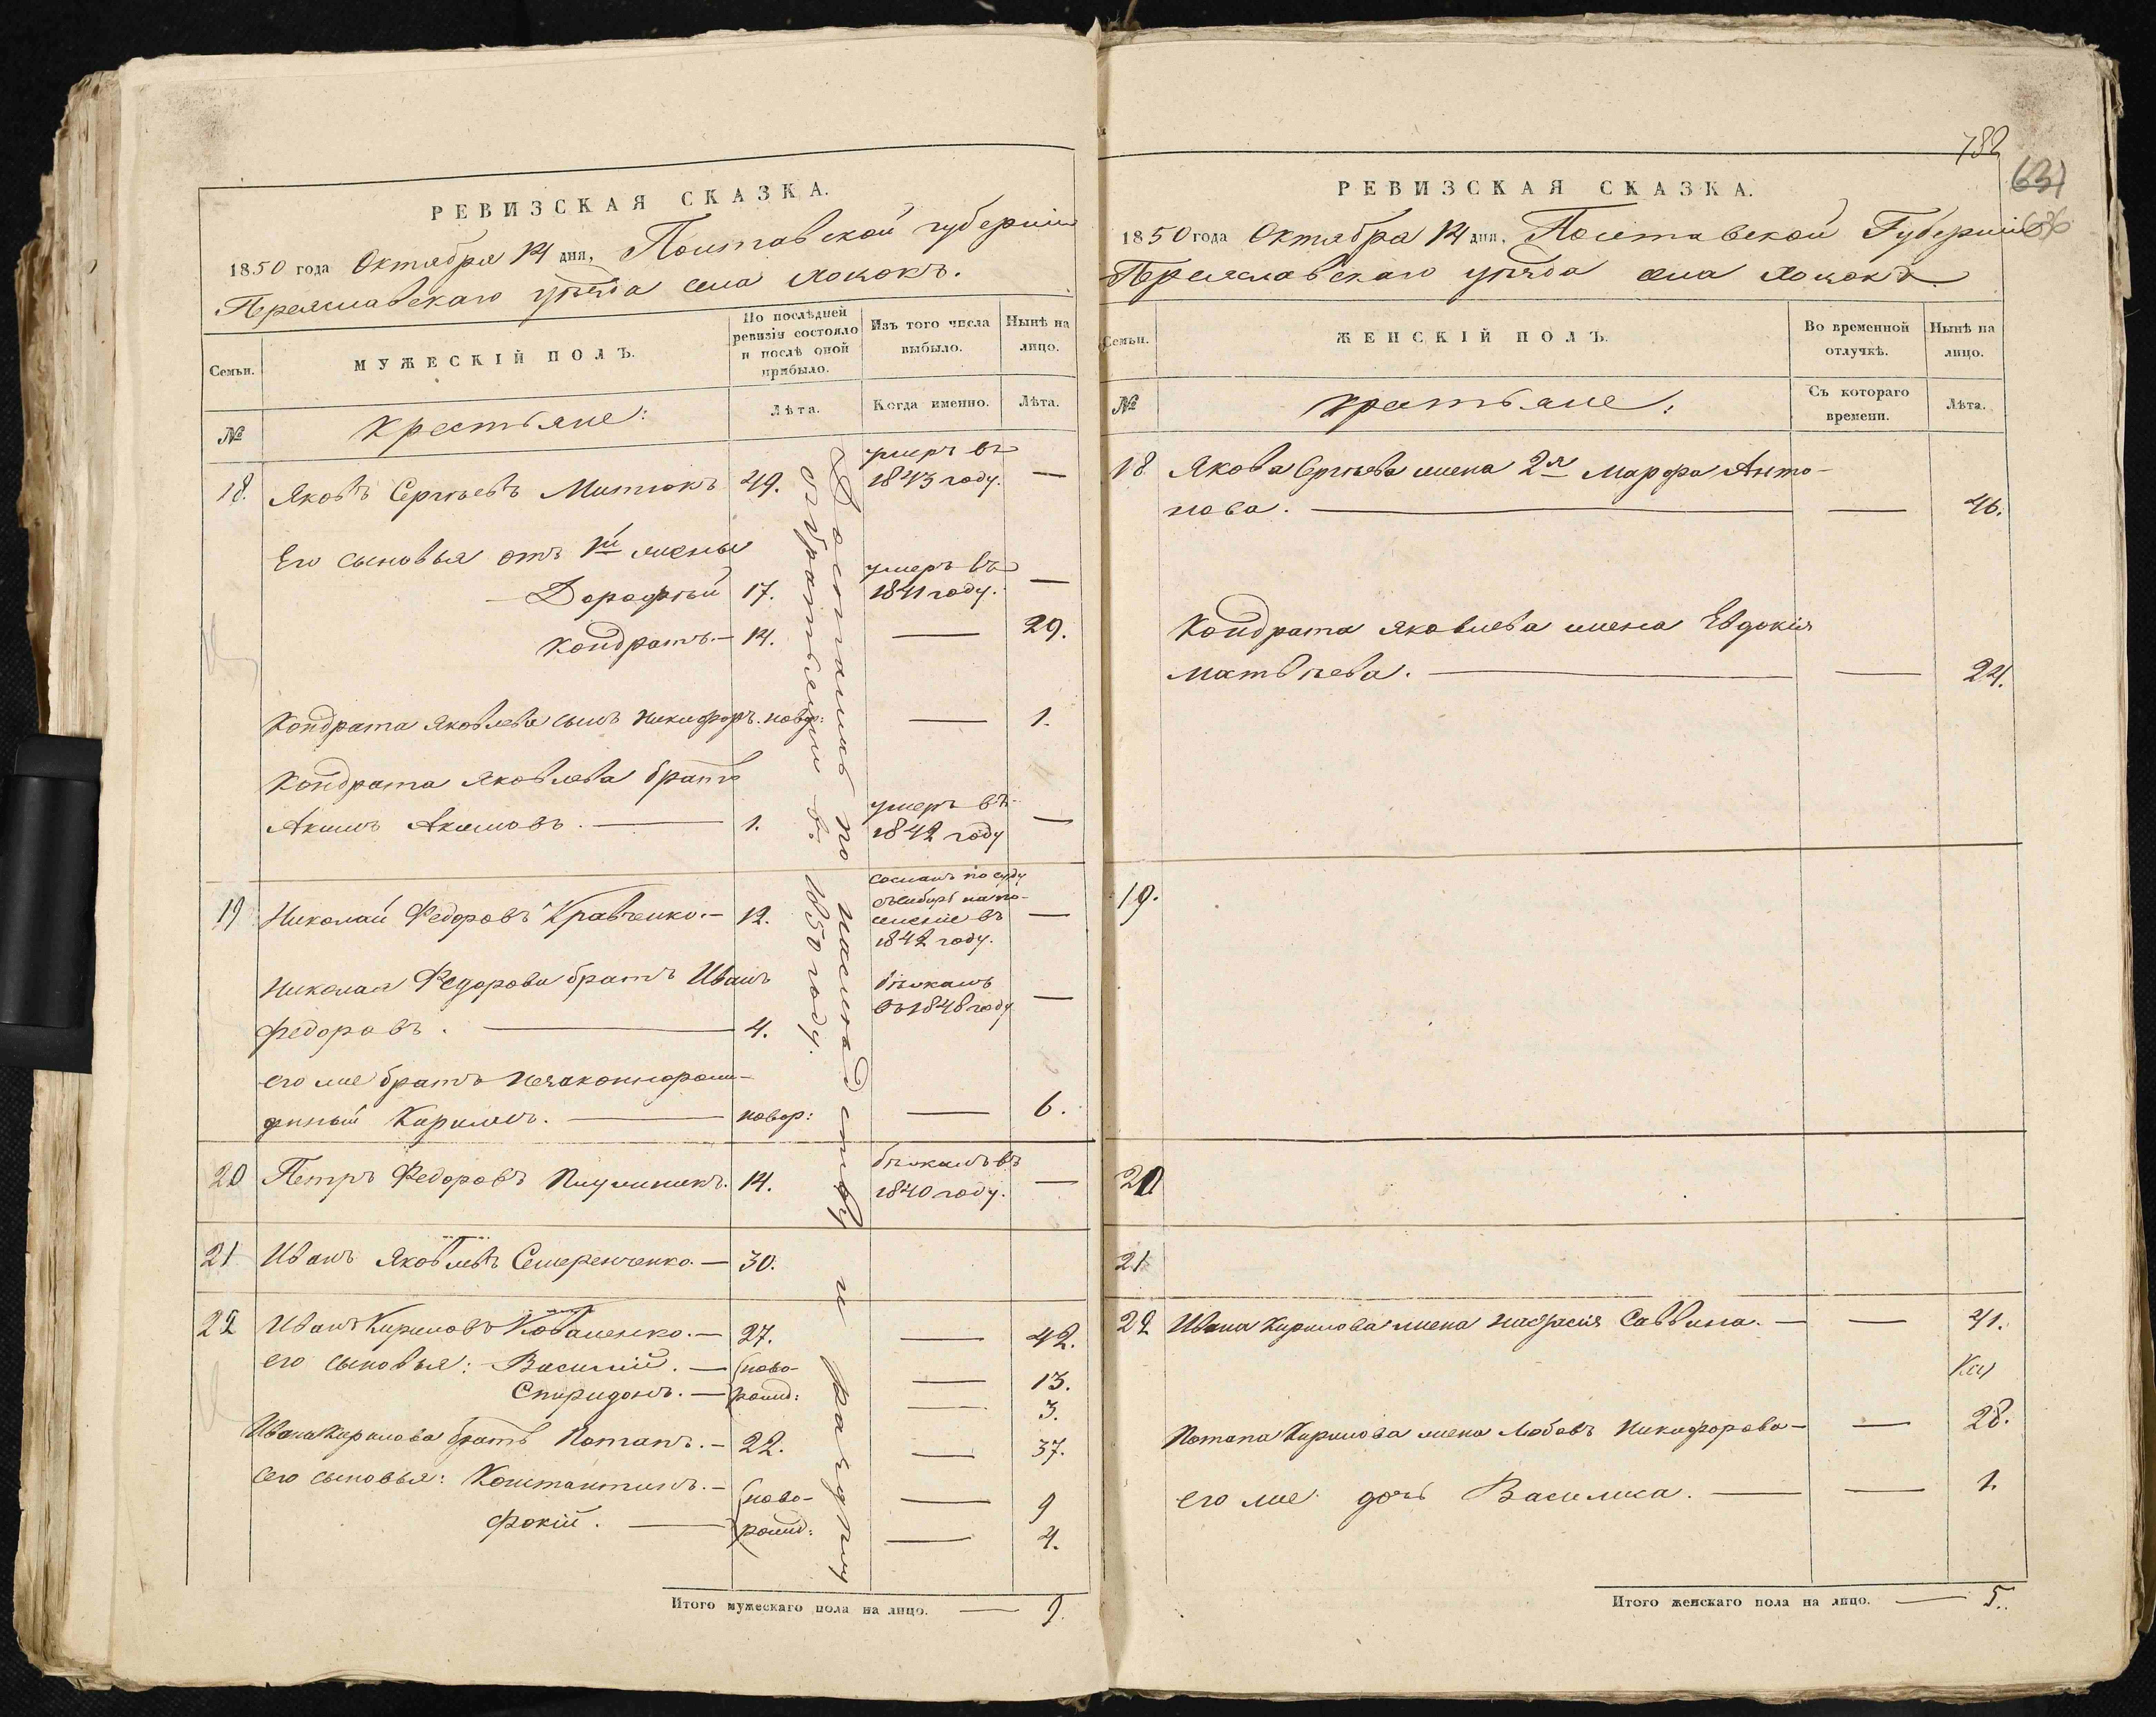 РЕВИЗСКАЯ СКАЗКА.
1850 года Октября 14 дня, Полтавской губерніи
Переяславскаго уѣзда села
Семьи.
МУЖЕСКІЙ ПОЛЪ.
По послѣдней ревизіи состояло и послѣ оной прибыло.
Изъ того числа выбыло.
Нынѣ на лицо.
№
Крестьяне:
Лѣта.
Когда именно.
Лѣта.
Досталсь по наслѣдству и раздѣлу
отъ братьевъ в: 1850 году.
18. Яковъ Сергѣевъ Митюкъ 49. умеръ въ 1843 году. —
Его сыновья отъ 1й жены
Дорофѣй 17. умеръ въ 1841 году. —
Кондратъ. — 14. — 29.
Кондрата Яковлева сынъ Никифоръ. новор: — 1.
Кондрата Яковлева братъ
Акимъ Акимовъ. — 1. умеръ въ 1842 году —
19 Николай Федоровъ Кравченко. — 12. сосланъ по суду въ Сибирь на поселеніе въ 1842 году. —
Николая Федорова братъ Иванъ
Федоровъ. — 4. бѣжалъ въ 1848 году —
его же братъ незаконнорож-
денный Кирилъ. — новор: — 6.
20 Петръ Федоровъ 14. бѣжалъ въ 1840 году. —
21 Иванъ Яковлевъ Семеренченко. — 30.
22 Иванъ Кириловъ Коваленко. — 27. — 42.
его сыновья: Василій. — (ново- — 13.
Спиридонъ. — рожд: — 3.
Ивана Кирилова братъ Потапъ. — 22. — 37.
его сыновья: Константинъ. — (ново- — 9
Фокій. — рожд: — 4.
Итого мужескаго пола на лицо. — 9.
782
631
636
РЕВИЗСКАЯ СКАЗКА.
1850 года Октября 14 дня, Полтавской Губерніи
Переяславскаго уѣзда села
Семьи.
ЖЕНСКІЙ ПОЛЪ.
Во временной отлучкѣ.
Нынѣ на лицо.
№
Крестьяне:
Съ котораго времени.
Лѣта.
18 Якова Сергѣева жена 2я Марфа Анто-
нова. — — 46.
Кондрата Яковлева жена Евдокія
Матвѣева. — — 24.
19.
20
21
22 Ивана Кирилова жена Настасія Саввина. — — 41.
Потапа Кирилова жена Любовь Никифорова — — 28.
его же дочь Василиса. — — 1.
Итого женскаго пола на лицо. — 5.